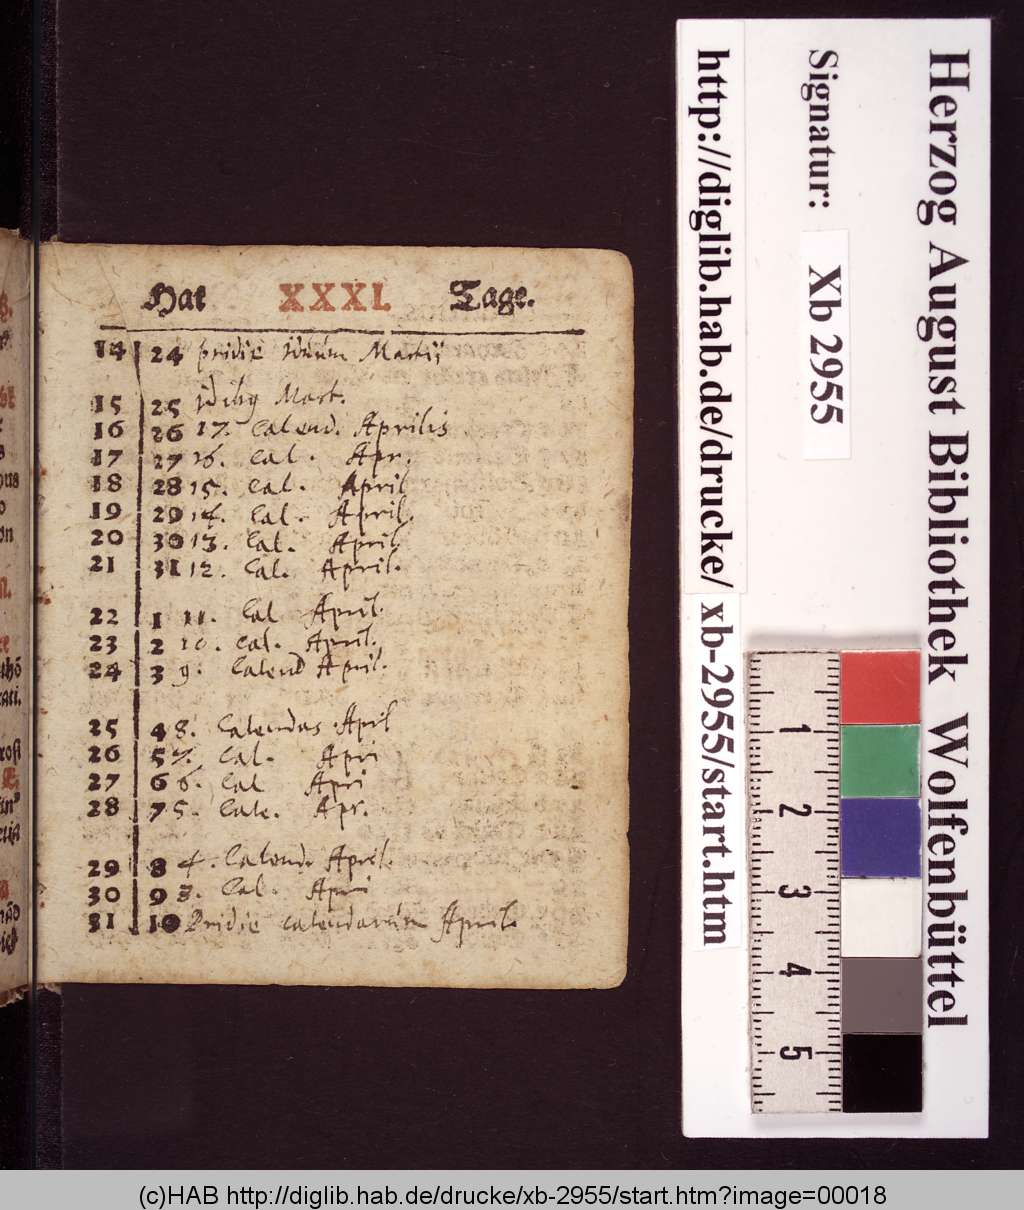 Hat XXXI. Tage.
14 24 pridie Iduum Martij
15 25 Idibus Mart.
16 26 17. Calend. Aprilis
17 27 16. Cal. Apr.
18 28 15. Cal. April
19 29 14. Cal. April.
20 30 13. Cal. April
21 31 12. Cal. April.
22 1 11. Cal April.
23 2 10. Cal. April.
24 3 9. Calend April.
25 4 8. Calendas April
26 5 7. Cal. Apri
27 6 6. Cal Apri
28 7 5. Cale. Apr.
29 8 4. Calend. April.
30 9 3. Cal. Apri
31 10 Pridie calendarum April.
Herzog August Bibliothek Wolfenbüttel
Signatur: Xb 2955
http://diglib.hab.de/drucke/ xb-2955/start.htm
1
2
3
4
5
(c)HAB http://diglib.hab.de/drucke/xb-2955/start.htm?image=00018